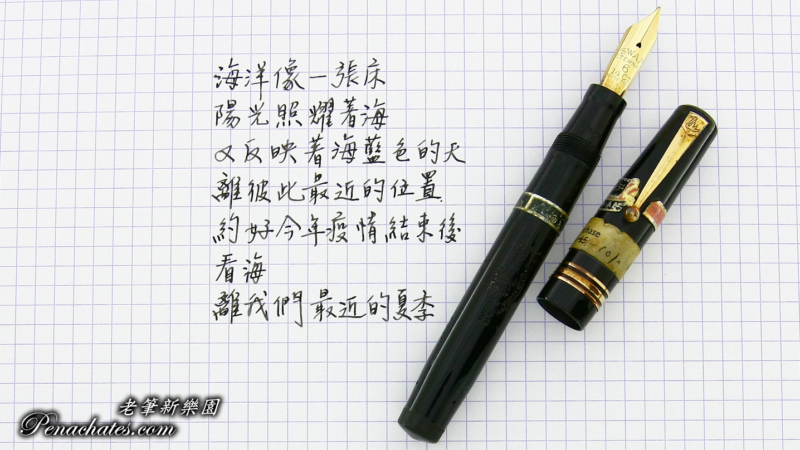 海洋像一張床
陽光照耀著海
又反映著海藍色的天
離彼此最近的位置
約好今年疫情結束後
看海
離我們最近的夏季
SWAN
6
老筆新樂園
Penachates.com